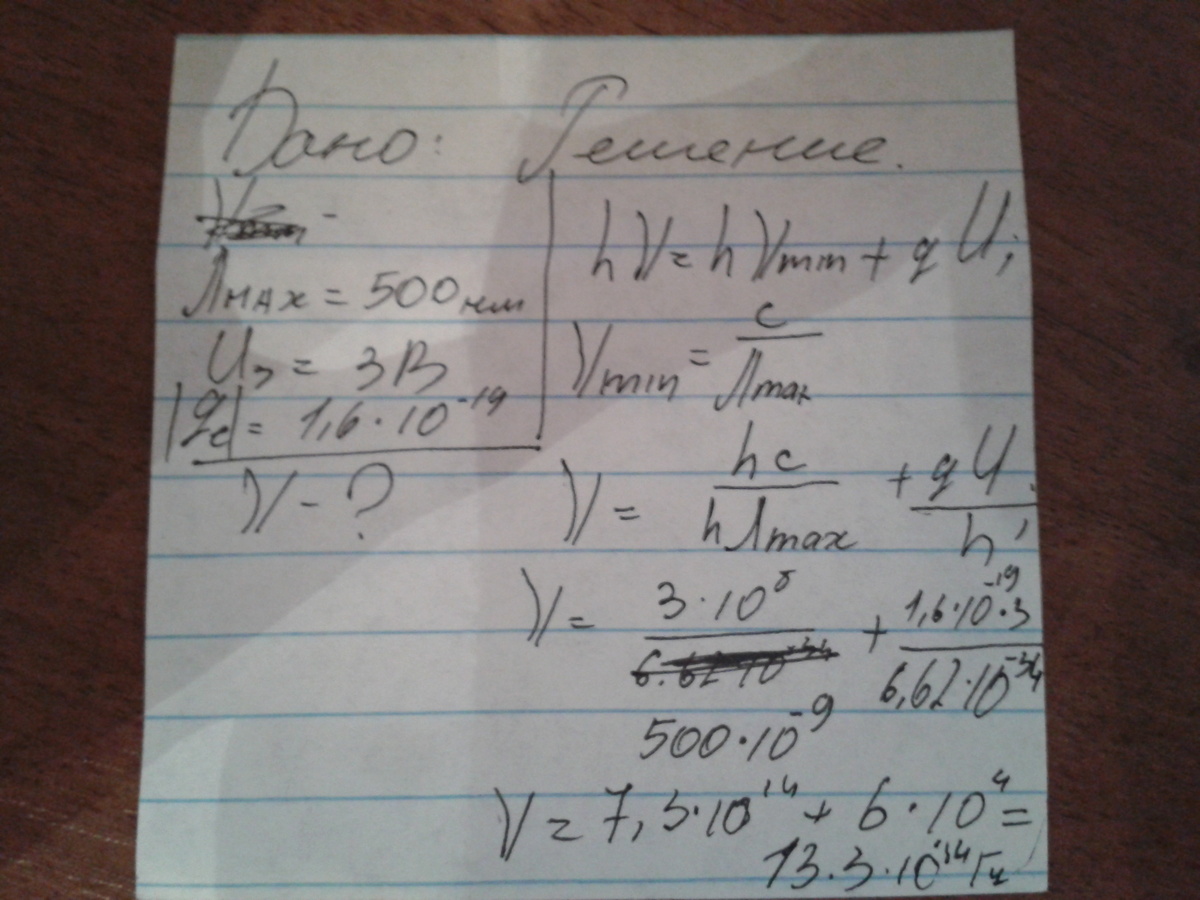 Дано: Решение.
λмах = 500нм
Uз = 3В
|qe| = 1,6·10⁻¹⁹
ν - ?
hν = hνmin + qU;
νmin = c/λmax
ν = hc/hλmax + qU/h;
ν = 3·10⁸/500·10⁻⁹ + 1,6·10⁻¹⁹·3/6,62·10⁻³⁴
ν = 7,3·10¹⁴ + 6·10⁴ =
13.3·10¹⁴ Гц